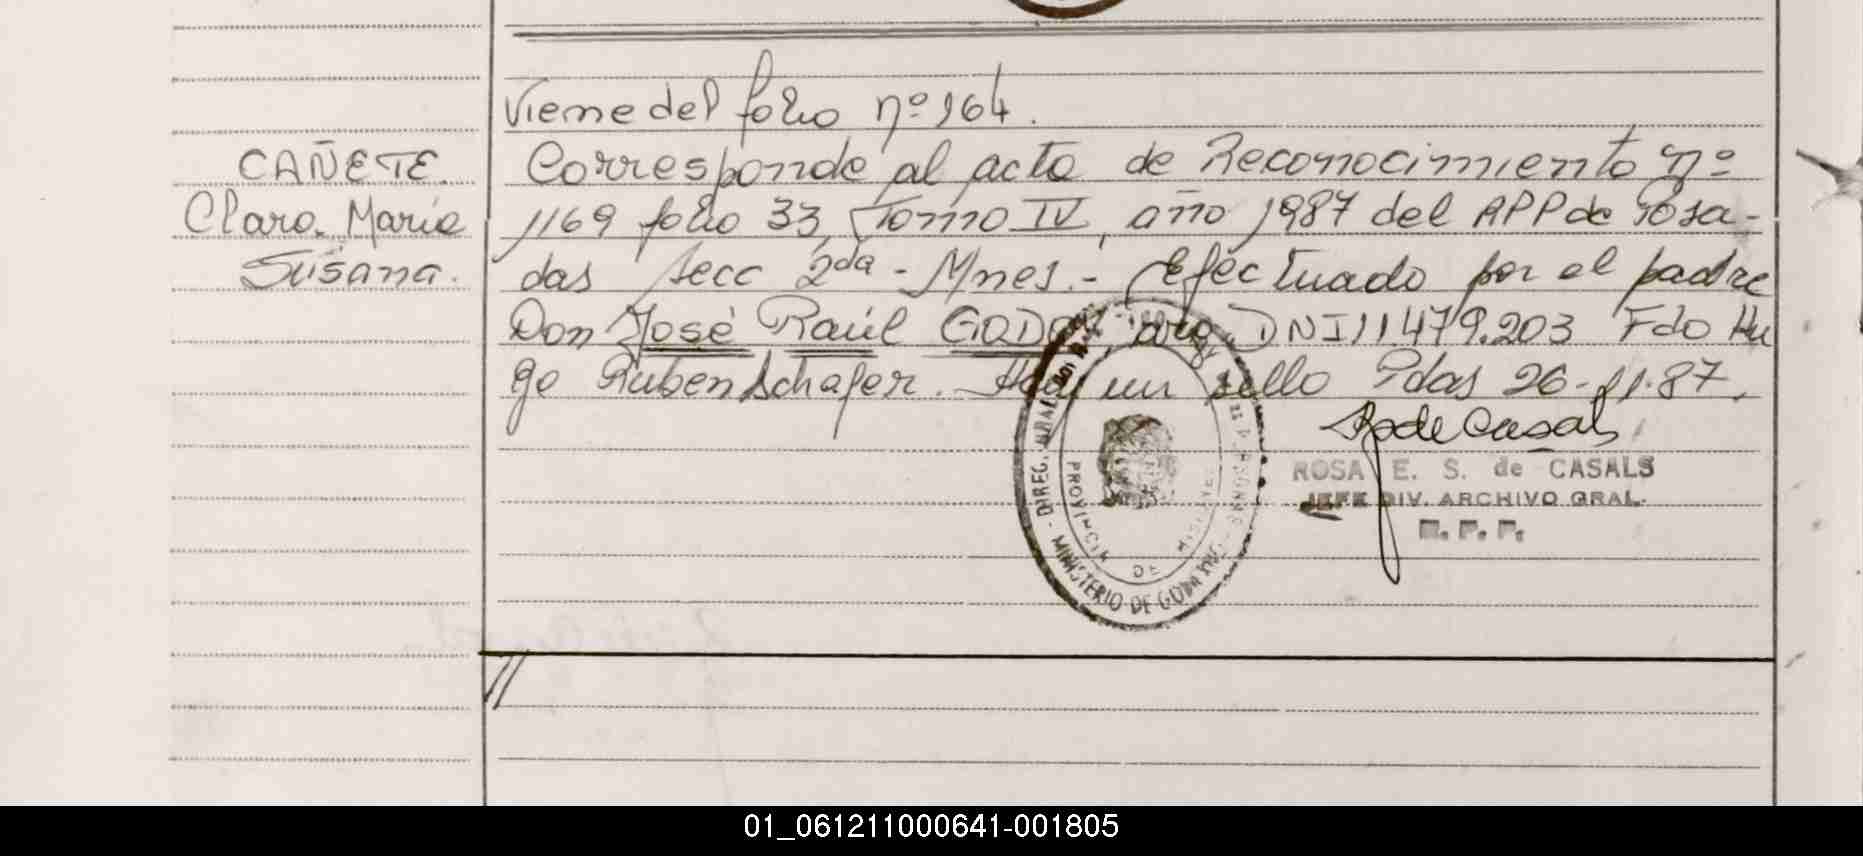 Viene del folio nº 164.
CAÑETE.
Clara. María
Susana.
Corresponde al acta de Reconocimiento nº
1169 folio 33, Tomo IV, año 1987 del APP de Posa-
das secc 2da - Mnes. - Efectuado por el padre
Don José Raúl GODOY, arg DNI 11479.203 Fdo Hu
go Ruben Schafer. Hay un sello Pdas 26-11-87.
ROSA E. S. de CASALS
JEFE DIV. ARCHIVO GRAL.
R. P. P.
DIREC. GRAL.
PROVINCIA DE MISIONES
MINISTERIO DE GOB
01_061211000641-001805